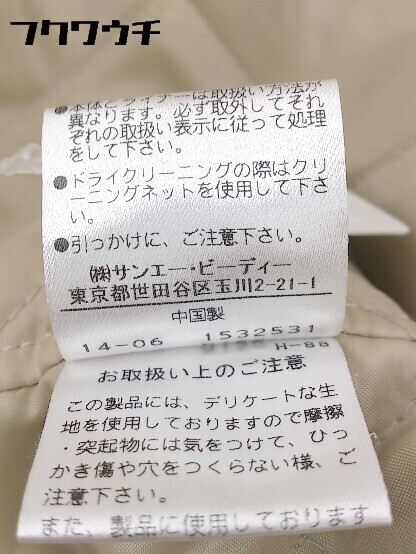 フクワウチ
●本体とライナーは取扱い方法が
異なります。必ず取外してそれ
ぞれの取扱い表示に従って処理
をして下さい。
●ドライクリーニングの際はクリ
ーニングネットを使用して下さ
い。
●引っかけに、ご注意下さい。
㈱サンエー・ビーディー
東京都世田谷区玉川2-21-1
中国製
14-06 1532531
H-88
お取扱い上のご注意
この製品には、デリケートな生
地を使用しておりますので摩擦
・突起物には気をつけて、ひっ
かき傷や穴をつくらない様、ご
注意下さい。
また、製品に使用しております